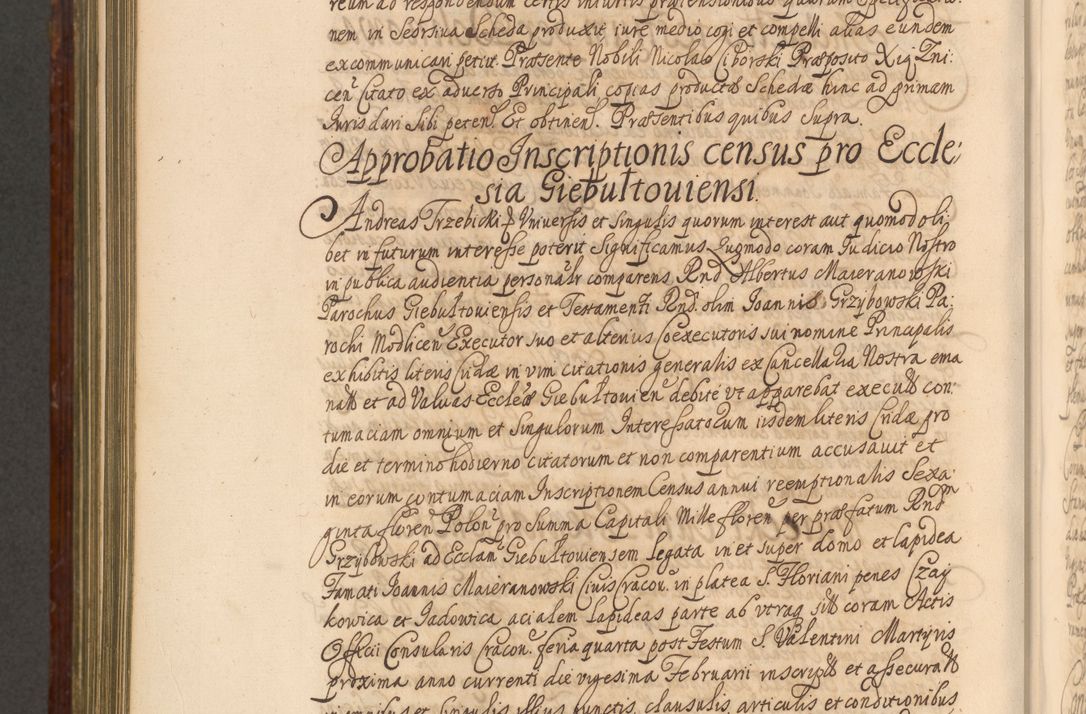 reum ad respondendum certis iniurijs prætensionibus quarum specificatio-
nem in Seorsiva Scheda produxit iure medio cogi et compelli alias eundem
excommunicari petiit. Præsente Nobili Nicolao Ciborski Præposito Xią Zni:
cen̄ Citato ex adverso Principali copias productæ Schedæ hinc ad primam
Iuris dari Sibi peten̄. Et obtinen̄. Præsentibus quibus supra.
Approbatio Inscriptionis census pro Eccle:
sia Giebułtoviensi.
Andreas Trzebicki & Universis et singulis quorum interest aut quomodoli:
bet in futurum interesse poterit Significamus. Quomodo coram Judicio Nostro
in publica audientia personalr comparens Rnd Albertus Maieranowski
Parochus Giebułtoviensis et Testamenti Rnd. olim Ioannis Grzybowski Pa:
rochi Modlicen̄ Executor suo et alterius Coexecutoris sui nomine Principalis
exhibitis literis Cridæ in vim citationis generalis ex Cancellaria Nostra ema
natis et ad Valvas Ecclæ Giebułtovien̄ debite ut apparebat executis con:
tumaciam omnium et singulorum Interessatorum iisdem literis Cridæ pro
die et termino hodierno citatorum et non comparentium accusavit et
in eorum contumaciam Inscriptionem Census annui reemptionalis Sexa:
ginta floren̄ Polon̄ pro Summa Capitali Mille floren̄ per præfatum Rndm
Grzybowski ad Ecclam Giebułtoviensem legata in et super domo et lapidea
Famati Ioannis Maieranowski Civis Cracov. in platea S. Floriani penes Czay
kowica et Jadowica acialem lapideas parte ab utraq sitis coram Actis
Officii Consularis Cracov. feria quarta post Festum S. Valentini Martyris
proxima anno currenti die vigesima Februarii inscriptis et assecuratis
in omnibus et singulis illius punctis, clausulis articulis et conditionibus